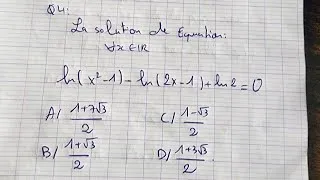 Q4:
La solution de Equation:
∀x∈IR
ln(x²-1)-ln(2x-1)+ln2=0
A/ (1+7√3)/2 C/ (1-√3)/2
B/ (1+√3)/2 D/ (1+3√3)/2.